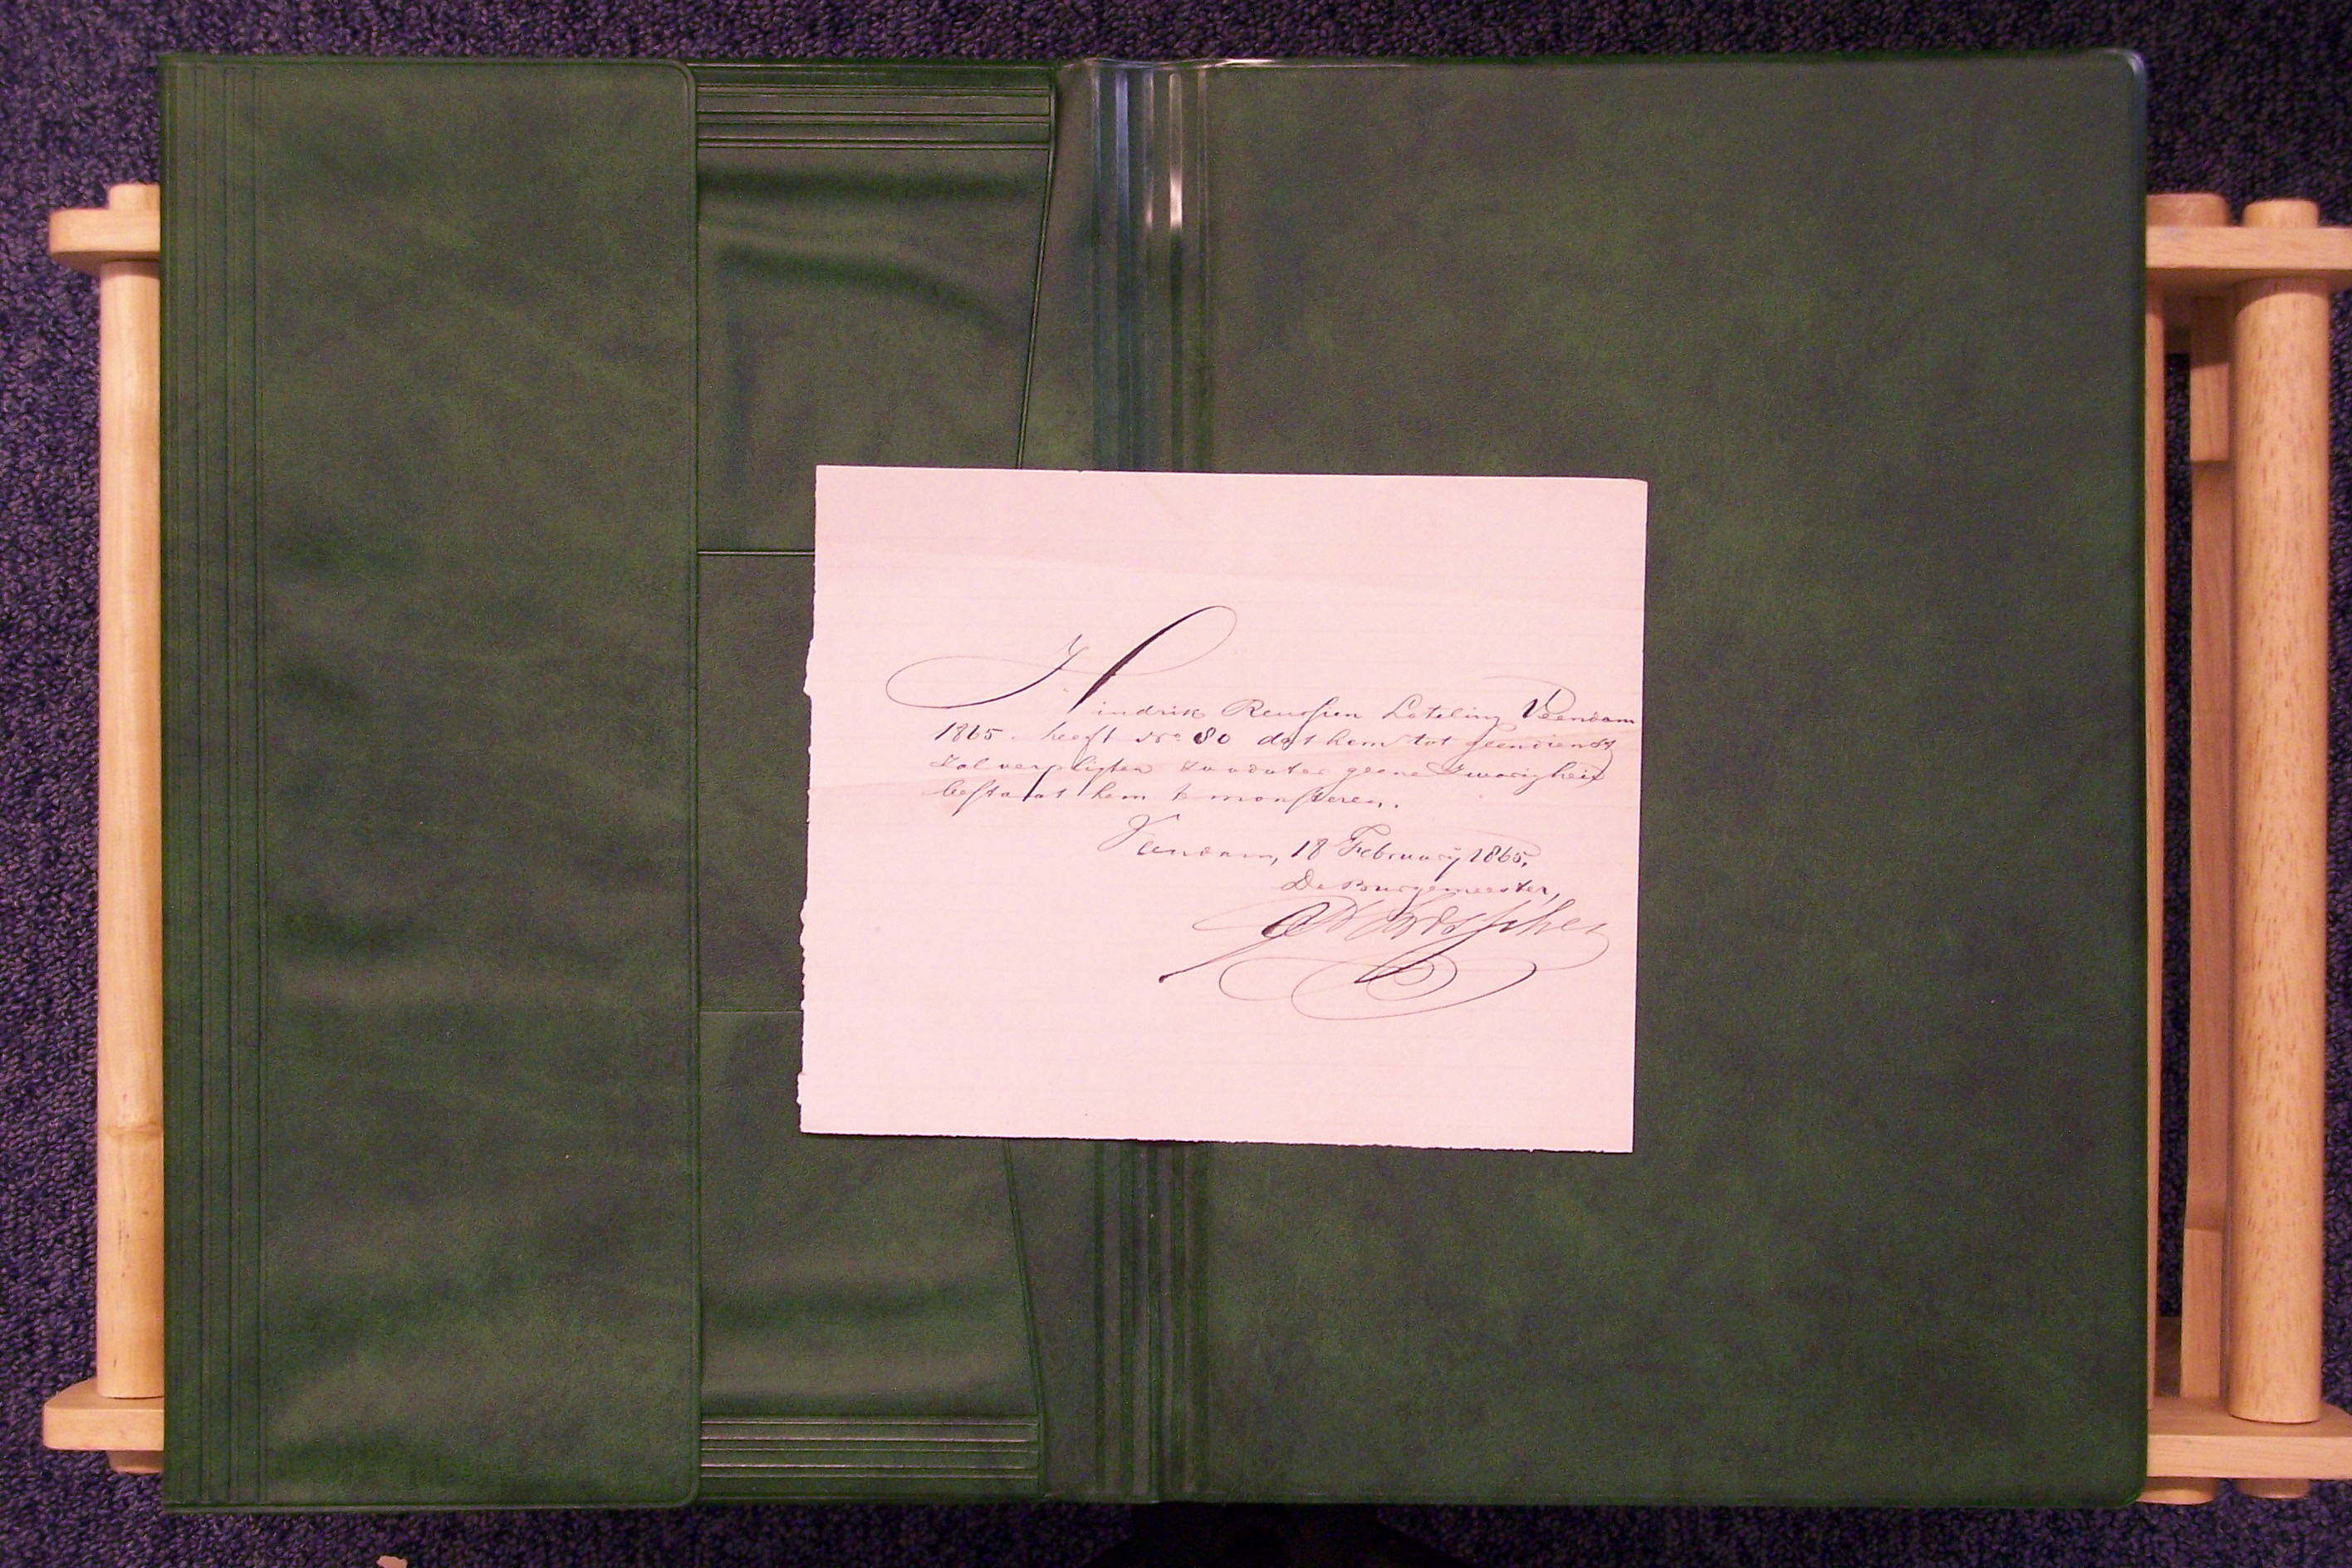 Hindrik Loteling Veendam
1865. heeft No. 80 dat hem tot geendienst
zal verpligten zoodater geene zwarigheid
bestaat hem te monsteren.
Veendam, 18 February 1865.
De Burgemeester,